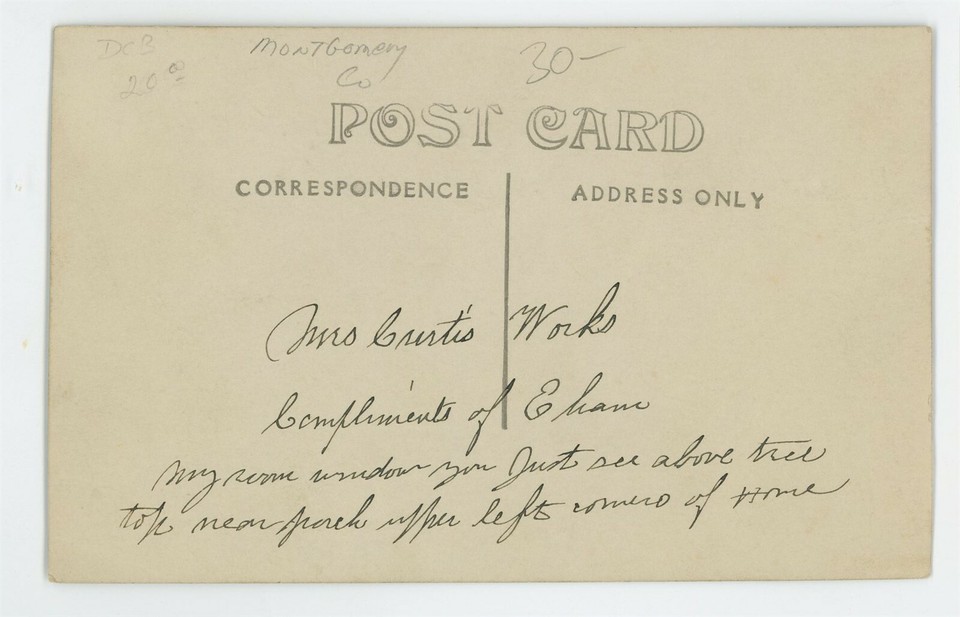 DCB
20 00
Montgomery
Co
30-
POST CARD
CORRESPONDENCE
ADDRESS ONLY
Mrs Curtis Works
Compliments of
my room window you Just see above tree
top near porch upper left corner of Home